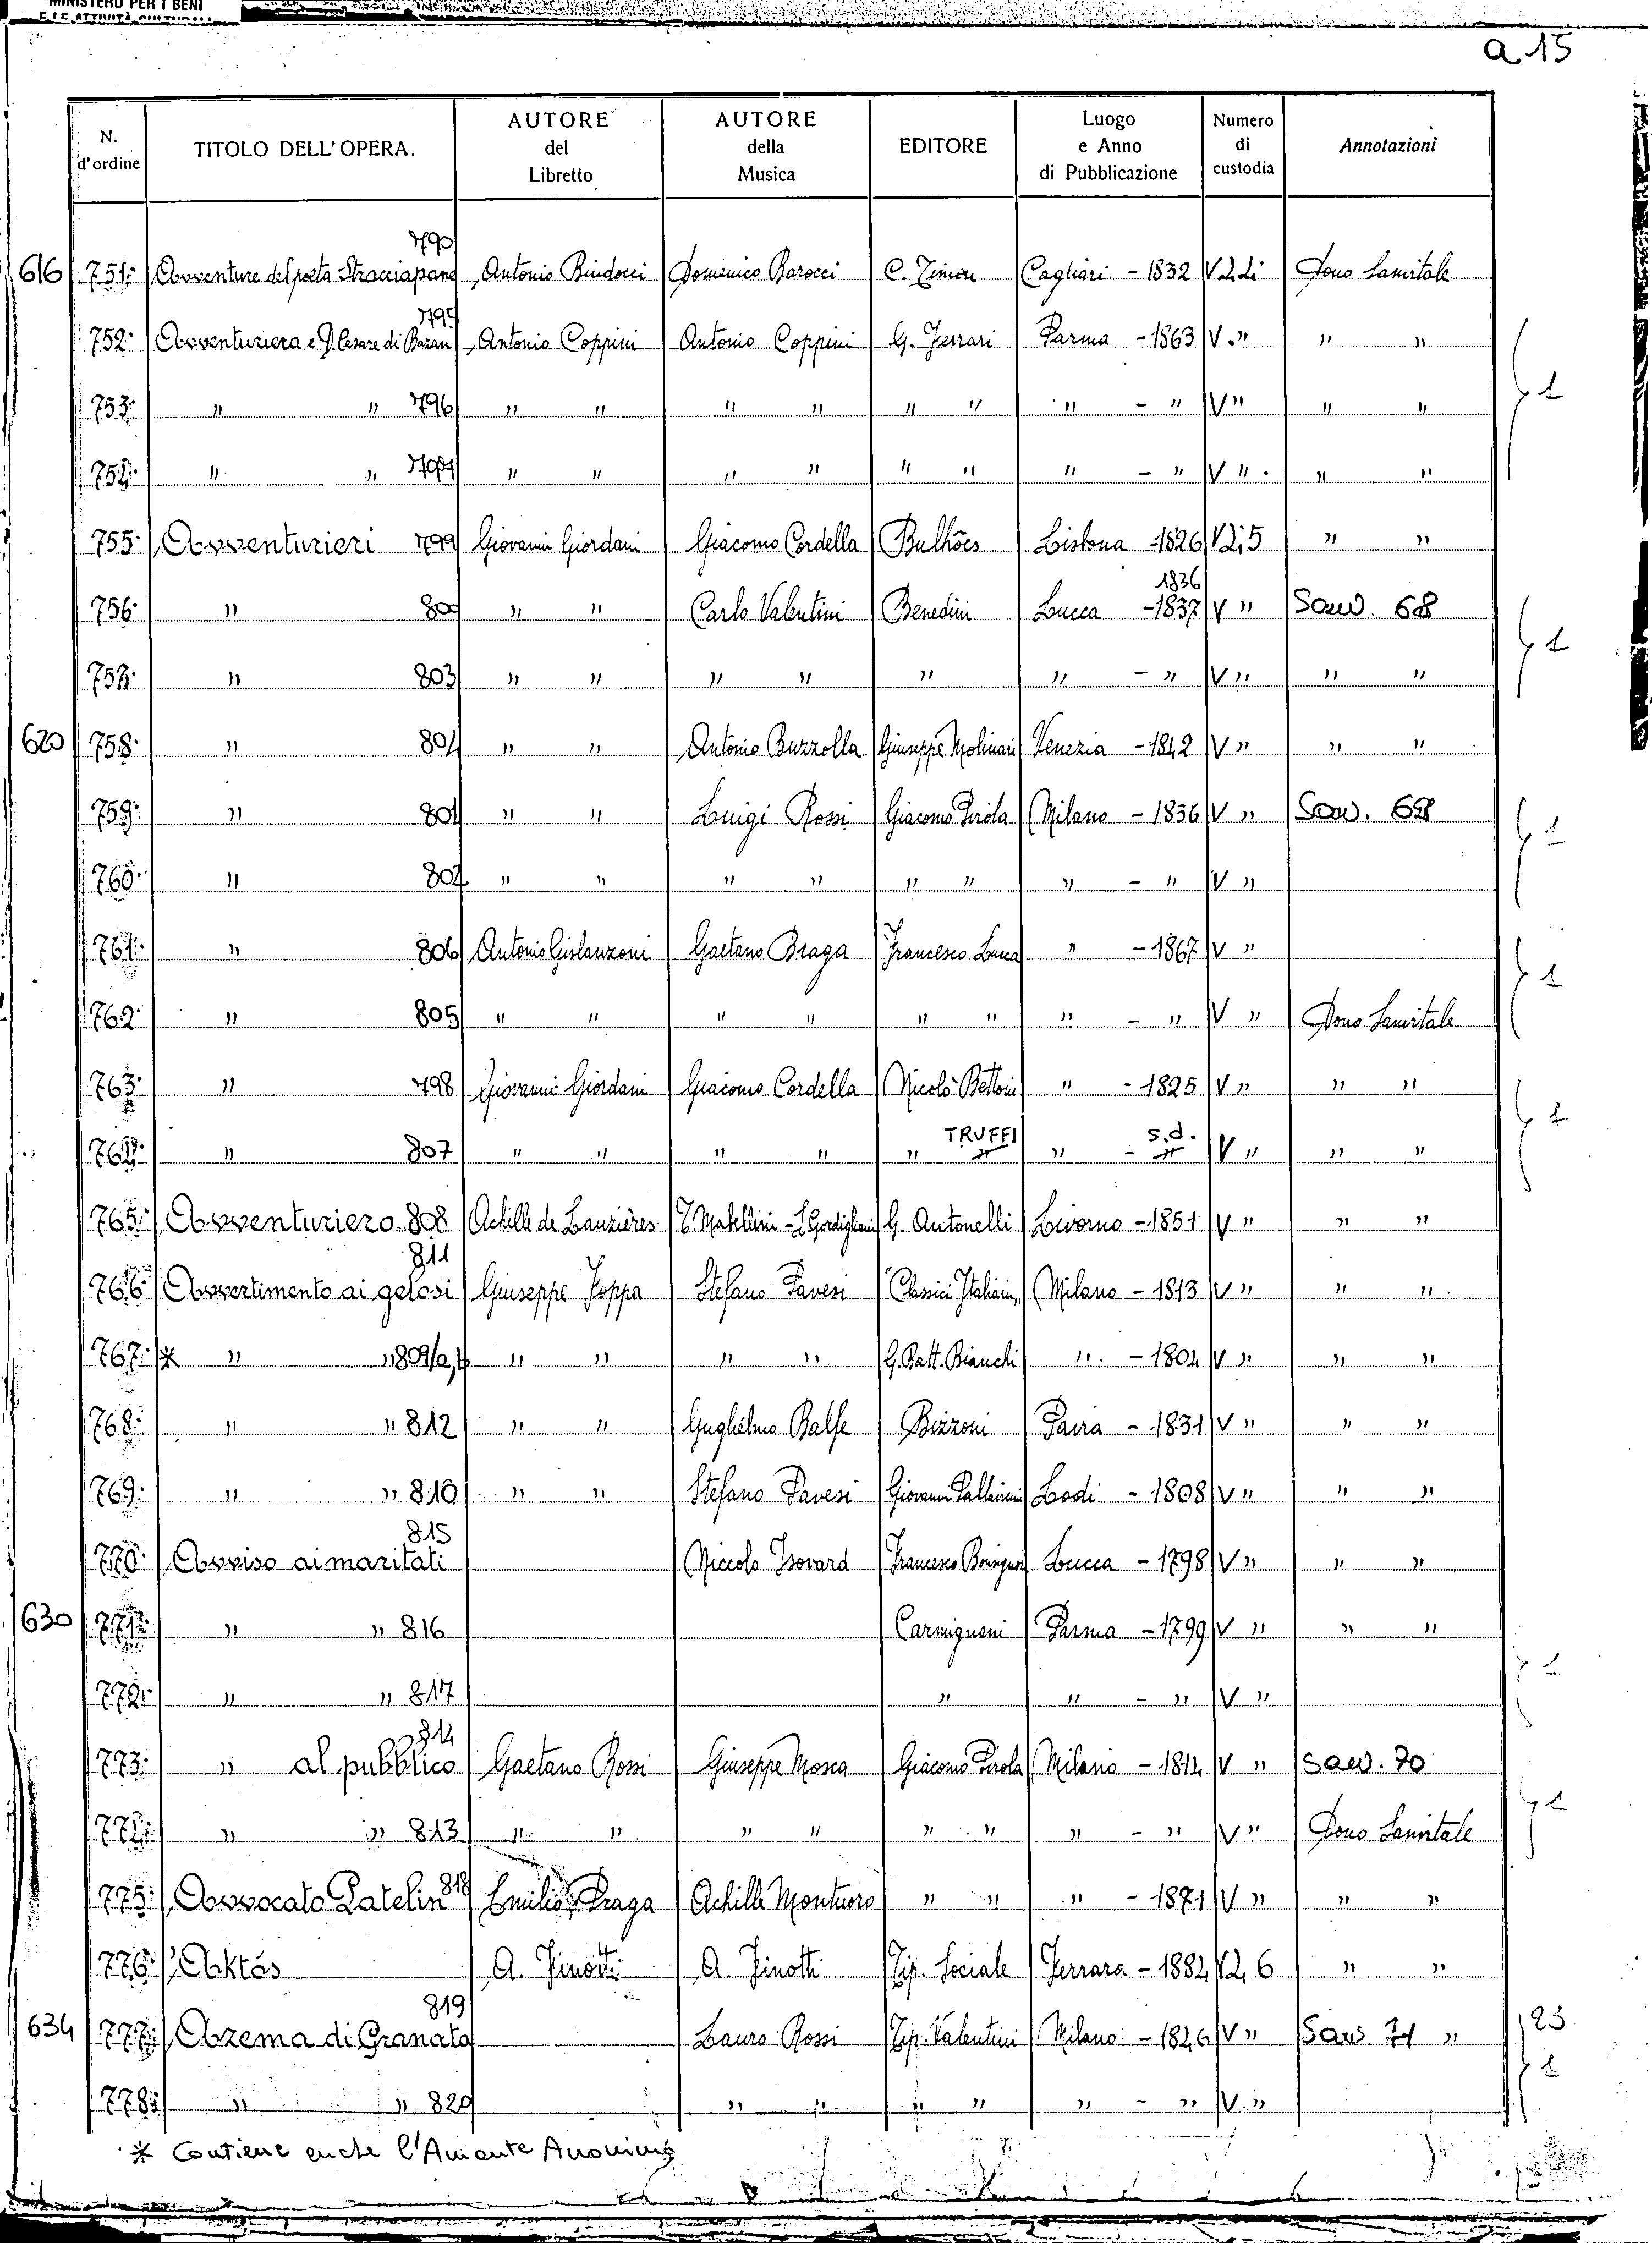 MINISTERO PER I BENI
E LE ATTIVITÀ CULTURALI
a 15
N. d'ordine | TITOLO DELL'OPERA. | AUTORE del Libretto | AUTORE della Musica | EDITORE | Luogo e Anno di Pubblicazione | Numero di custodia | Annotazioni
790
616 751. Avventure del poeta Stracciapane Antonio Bindocci Domenico Barocci C. Timon Cagliari - 1832 Dono Sanvitale
795
752. Avventuriera e D. Cesare di Bazan Antonio Coppini Antonio Coppini G. Ferrari Parma - 1863 V. " " "
753. " " 796 " " " " " " " - " V " " "
754. " " " " " " " " " - " V " " "
755. Avventurieri 799 Giovanni Giordani Giacomo Cordella Bulhões Lisbona - 1826 V2,5 " "
1836
756. " 800 " " Carlo Valentini Benedini Lucca - 1837 V " Sanv. 68
757. " 803 " " " " " " - " V " " "
620 758. " 804 " " Antonio Buzzolla Giuseppe Molinari Venezia - 1842 V " " "
759. " 801 " " Luigi Rossi Giacomo Pirola Milano - 1836 V " Sanv.
760. " 802 " " " " " " " - " V "
761. " 806 Antonio Gislanzoni Gaetano Braga Francesco Lucca " - 1867 V "
762. " 805 " " " " " " " - " V " Dono Sanvitale
763. " 798 Giovanni Giordani Giacomo Cordella Nicolò Bettoni " - 1825 V " " "
TRUFFI s.d.
764. " 807 " " " " " " " - " V " " "
765. Avventuriero 808 Achille de Lauzières T. Mabellini - L. Gordigiani G. Antonelli Livorno - 1851 V " " "
811
766. Avvertimento ai gelosi Giuseppe Foppa Stefano Pavesi Classici Italiani Milano - 1813 V " " "
767. * " " 809/a,b " " " " G. Batt. Bianchi " - 1804 V " " "
768. " " 812 " " Guglielmo Balfe Bizzoni Pavia - 1831 V " " "
769. " " 810 " " Stefano Pavesi Giovanni Pallavicini Lodi - 1808 V " " "
815
770. Avviso ai maritati Niccolo Isovard Francesco Lucca - 1798 V " " "
630 771. " " 816 Carmignani Parma - 1799 V " " "
772. " " 817 " " - " V "
814
773. " al pubblico Gaetano Rossi Giuseppe Mosca Giacomo Pirola Milano - 1814 V " Sanv. 70
774. " " 813 " " " " " " " - " V " Dono Sanvitale
775. Avvocato Patelin 818 Emilio Praga Achille Montuoro " " " - 1871 V " " "
776. Aktás A. Finotti A. Finotti Tip. Sociale Ferrara - 1884 V2,6 " "
819
634 777. Azema di Granata Lauro Rossi Tip. Valentini Milano - 1846 V " Sanv 71 " 23
778. " " 820 " " " " " - " V. "
* Contiene anche l'Amante Anonimo